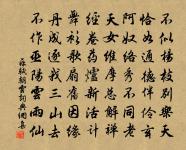 不似楊枝別樂天
恰如通德伴伶玄
阿奴絡秀不同老
天女維摩總解禪
經卷藥爐新活計
舞衫歌扇舊因緣
丹成逐我三山去
不作巫陽雲雨仙
蘇軾朝雲詞典網